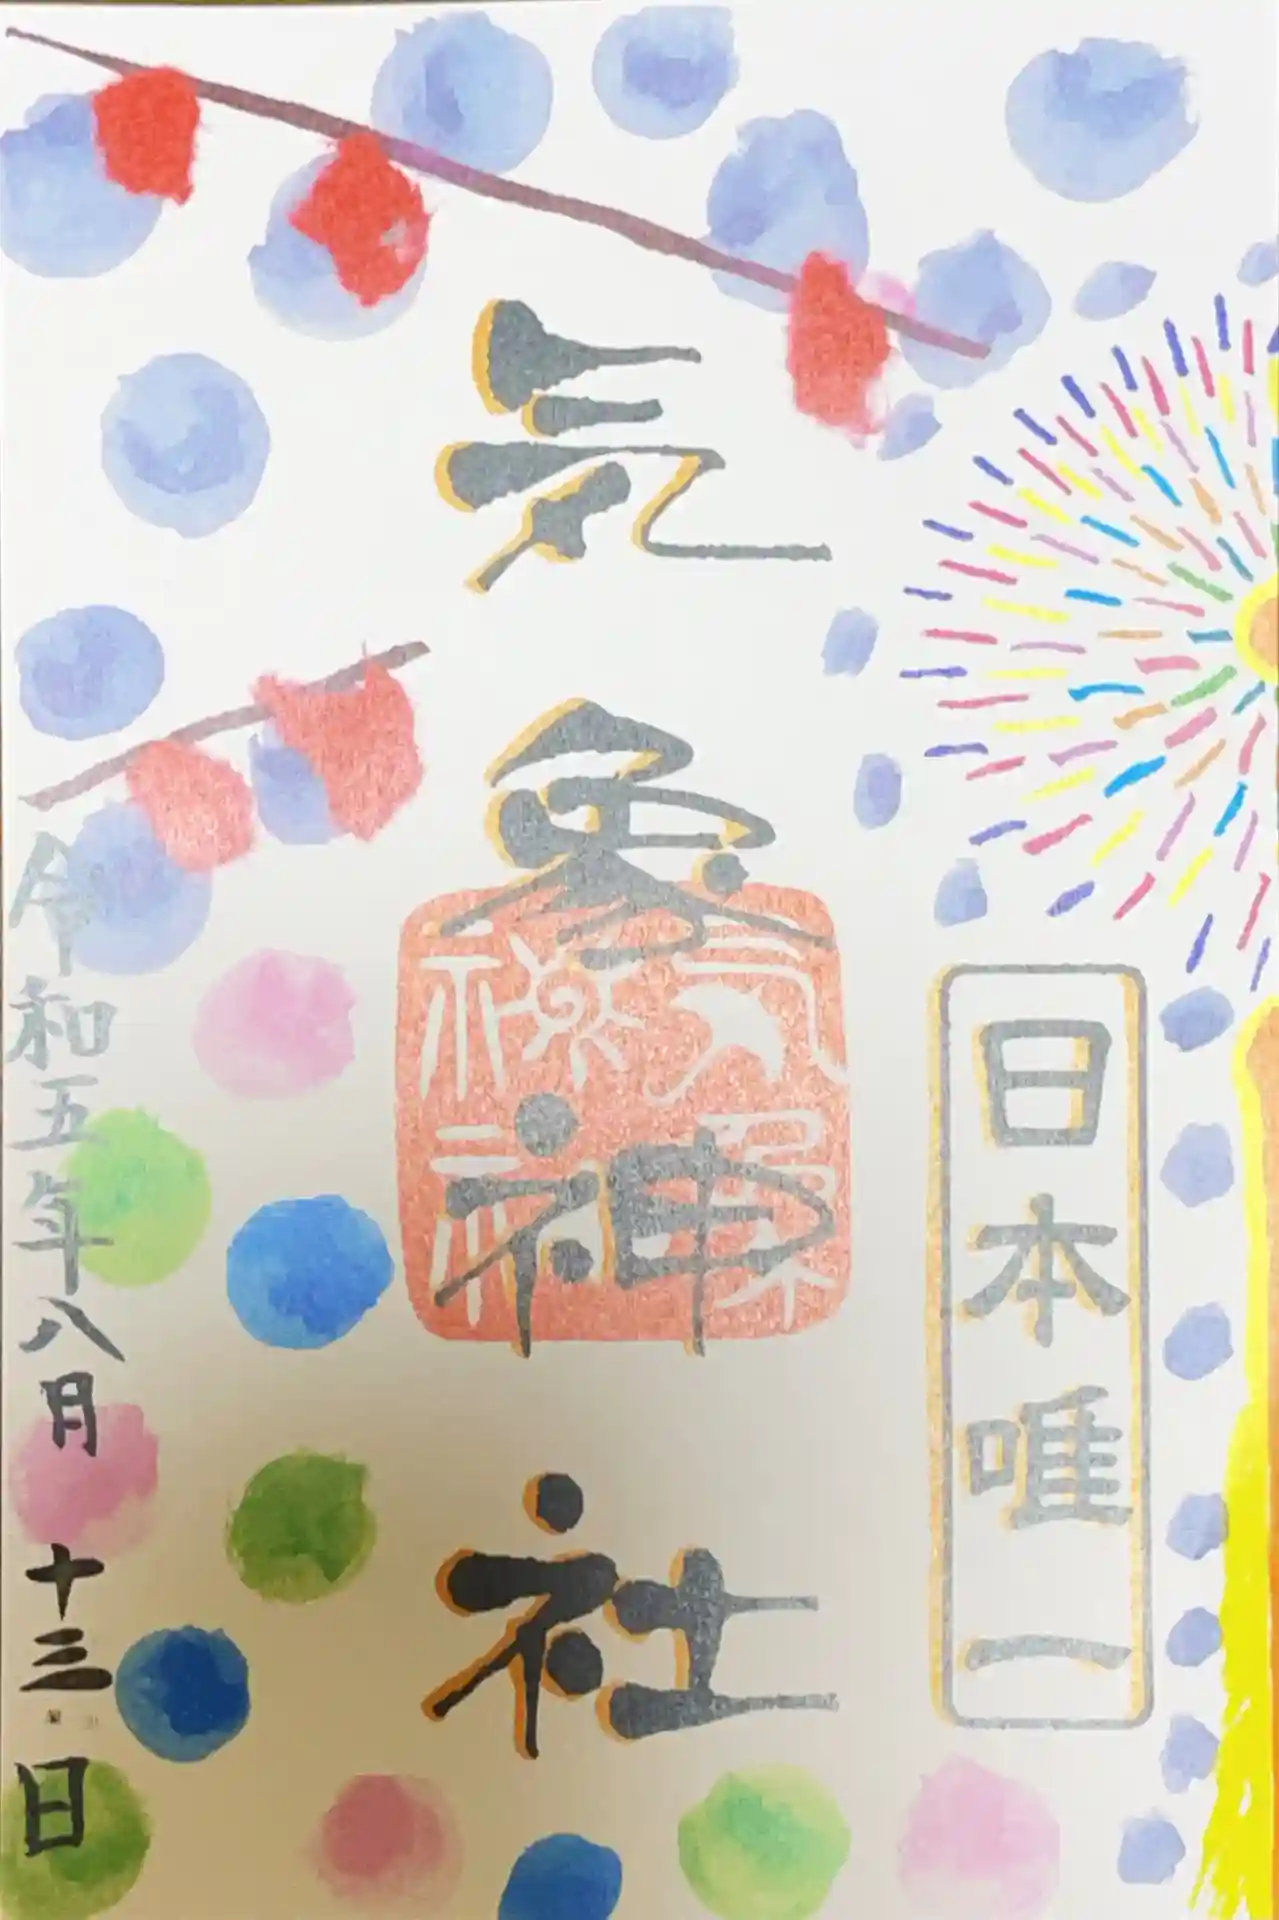 日本唯一
気象神社
令和五年八月十三日
気象神社